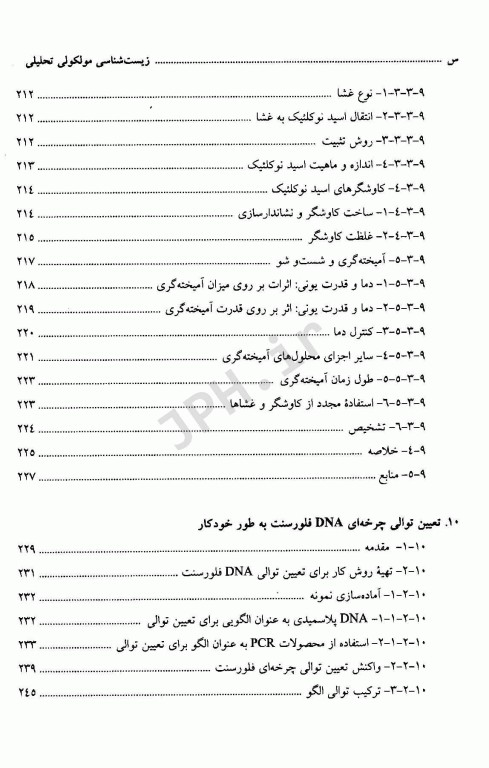 س ........ زیست‌شناسی مولکولی تحلیلی
۹-۳-۳-۱- نوع غشا ........ ۲۱۲
۹-۳-۳-۲- انتقال اسید نوکلئیک به غشا ........ ۲۱۲
۹-۳-۳-۳- روش تثبیت ........ ۲۱۲
۹-۳-۳-۴- اندازه و ماهیت اسید نوکلئیک ........ ۲۱۳
۹-۳-۴- کاوشگرهای اسید نوکلئیک ........ ۲۱۴
۹-۳-۴-۱- ساخت کاوشگر و نشاندارسازی ........ ۲۱۴
۹-۳-۴-۲- غلظت کاوشگر ........ ۲۱۵
۹-۳-۵- آمیخته‌گری و شست‌و شو ........ ۲۱۷
۹-۳-۵-۱- دما و قدرت یونی: اثرات بر روی میزان آمیخته‌گری ........ ۲۱۸
۹-۳-۵-۲- دما و قدرت یونی: اثر بر روی قدرت آمیخته‌گری ........ ۲۱۹
۹-۳-۵-۳- کنترل دما ........ ۲۲۰
۹-۳-۵-۴- سایر اجزای محلول‌های آمیخته‌گری ........ ۲۲۱
۹-۳-۵-۵- طول زمان آمیخته‌گری ........ ۲۲۳
۹-۳-۵-۶- استفادهٔ مجدد از کاوشگر و غشاها ........ ۲۲۳
۹-۳-۶- تشخیص ........ ۲۲۴
۹-۴- خلاصه ........ ۲۲۵
۹-۵- منابع ........ ۲۲۷
۱۰. تعیین توالی چرخه‌ای DNA فلورسنت به طور خودکار
۱۰-۱- مقدمه ........ ۲۲۹
۱۰-۲- تهیهٔ روش کار برای تعیین توالی DNA فلورسنت ........ ۲۳۱
۱۰-۲-۱- آماده‌سازی نمونه ........ ۲۳۲
۱۰-۲-۱-۱- DNA پلاسمیدی به عنوان الگویی برای تعیین توالی ........ ۲۳۲
۱۰-۲-۱-۲- استفاده از محصولات PCR به عنوان الگو برای تعیین توالی ........ ۲۳۳
۱۰-۲-۲- واکنش تعیین توالی چرخه‌ای فلورسنت ........ ۲۳۹
۱۰-۲-۳- ترکیب توالی الگو ........ ۲۴۵
JPH.ir